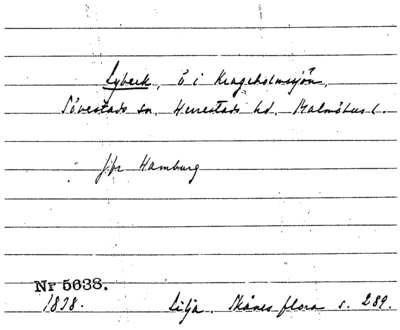 Lybeck, ö i Krageholmssjön,
Sövestads sn. Herrestads hd. Malmöhus l.
jfr Hamburg
Nr 5638.
1838. Lilja, Skånes flora s. 289.